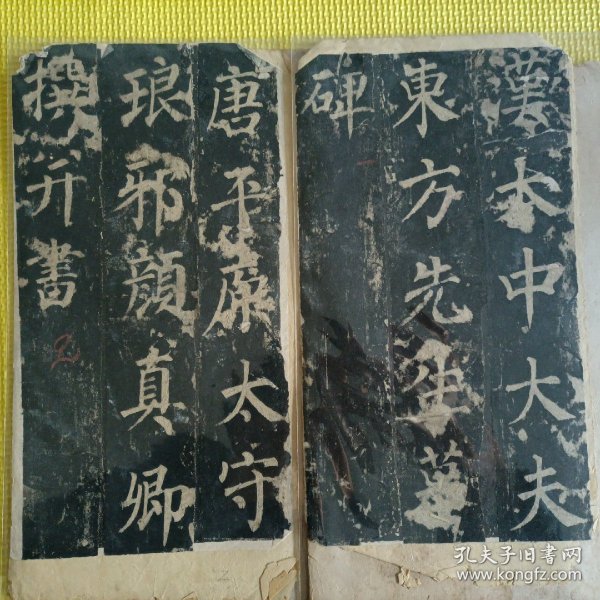 漢太中大夫
東方先生墓
碑
唐平原太守
琅邪顔真卿
撰并書
2
孔夫子旧书网
www.kongfz.com